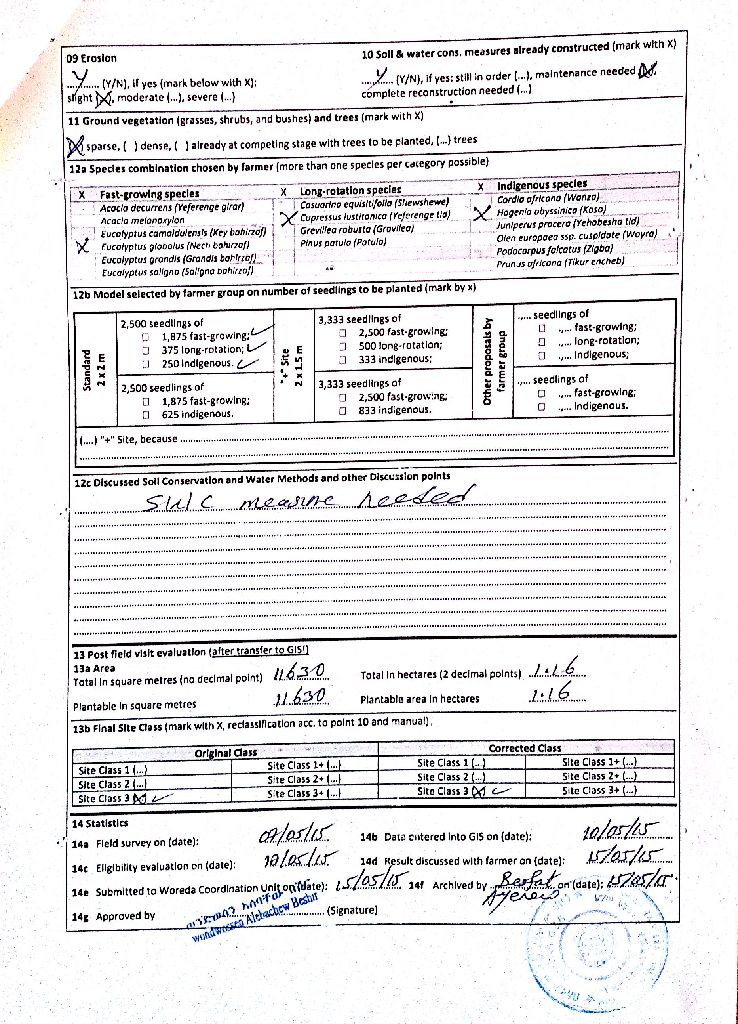 09 Erosion
10 Soil & water cons. measures already constructed (mark with X)
Y (Y/N), if yes (mark below with X):
Y (Y/N), if yes: still in order (...), maintenance needed (X),
slight (X), moderate (...), severe (...)
complete reconstruction needed (...)
11 Ground vegetation (grasses, shrubs, and bushes) and trees (mark with X)
(X) sparse, ( ) dense, ( ) already at competing stage with trees to be planted, (...) trees
12a Species combination chosen by farmer (more than one species per category possible)
X Fast-growing species
Acacia decurrens (Yeferenge girar)
Acacia melanoxylon
Eucalyptus camaldulensis (Key bahirzaf)
X Eucalyptus globolus (Nech bahirzaf)
Eucalyptus grandis (Grandis bahirzaf)
Eucalyptus saligna (Saligna bahirzaf)
X Long-rotation species
Casuarina equisitifolia (Shewshewe)
X Cupressus lustitanica (Yeferenge tid)
Grevillea robusta (Gravilea)
Pinus patula (Patula)
X Indigenous species
Cordia africana (Wanza)
X Hagenia abyssinica (Koso)
Juniperus procera (Yehabesha tid)
Olea europaea ssp. cuspidate (Woyra)
Podocarpus falcatus (Zigba)
Prunus africana (Tikur encheb)
12b Model selected by farmer group on number of seedlings to be planted (mark by x)
Standard
2 x 2 m
2,500 seedlings of
☐ 1,875 fast-growing; ✓
☐ 375 long-rotation; ✓
☐ 250 indigenous. ✓
2,500 seedlings of
☐ 1,875 fast-growing;
☐ 625 indigenous.
"+" Site
2 x 1.5 m
3,333 seedlings of
☐ 2,500 fast-growing;
☐ 500 long-rotation;
☐ 333 indigenous;
3,333 seedlings of
☐ 2,500 fast-growing;
☐ 833 indigenous.
Other proposals by
farmer group
..... seedlings of
☐ ..... fast-growing;
☐ ..... long-rotation;
☐ ..... indigenous;
..... seedlings of
☐ ..... fast-growing;
☐ ..... indigenous.
(....) "+" Site, because
12c Discussed Soil Conservation and Water Methods and other Discussion points
SWC measure needed
13 Post field visit evaluation (after transfer to GIS!)
13a Area
Total in square metres (no decimal point) 11630
Total in hectares (2 decimal points) 1.16
Plantable in square metres 11630
Plantable area in hectares 1.16
13b Final Site Class (mark with X, reclassification acc. to point 10 and manual).
Original Class
Corrected Class
Site Class 1 (...) Site Class 1+ (...) Site Class 1 (...) Site Class 1+ (...)
Site Class 2 (...) Site Class 2+ (...) Site Class 2 (...) Site Class 2+ (...)
Site Class 3 (X) ✓ Site Class 3+ (...) Site Class 3 (X) ✓ Site Class 3+ (...)
14 Statistics
14a Field survey on (date): 09/05/15
14b Data entered into GIS on (date): 10/05/15
14c Eligibility evaluation on (date): 10/05/15
14d Result discussed with farmer on (date): 15/05/15
14e Submitted to Woreda Coordination Unit on (date): 15/05/15
14f Archived by on (date): 15/05/15
14g Approved by (Signature)